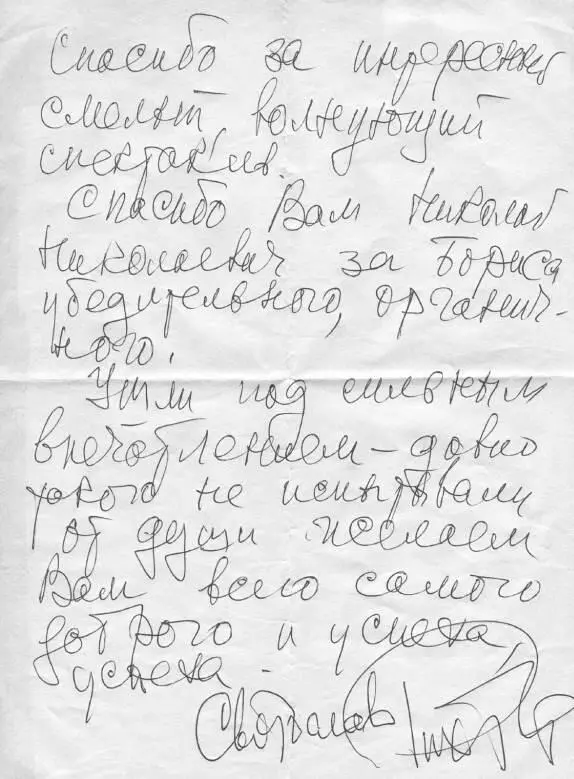 Спасибо за интересный
смелый, волнующий
спектакль.
Спасибо Вам Николай
Николаевич за Бориса
убедительного, органич-
ного.
Ушли под сильным
впечатлением – давно
такого не испытывали
от души желаем
Вам всего самого
доброго и успеха,
успеха.